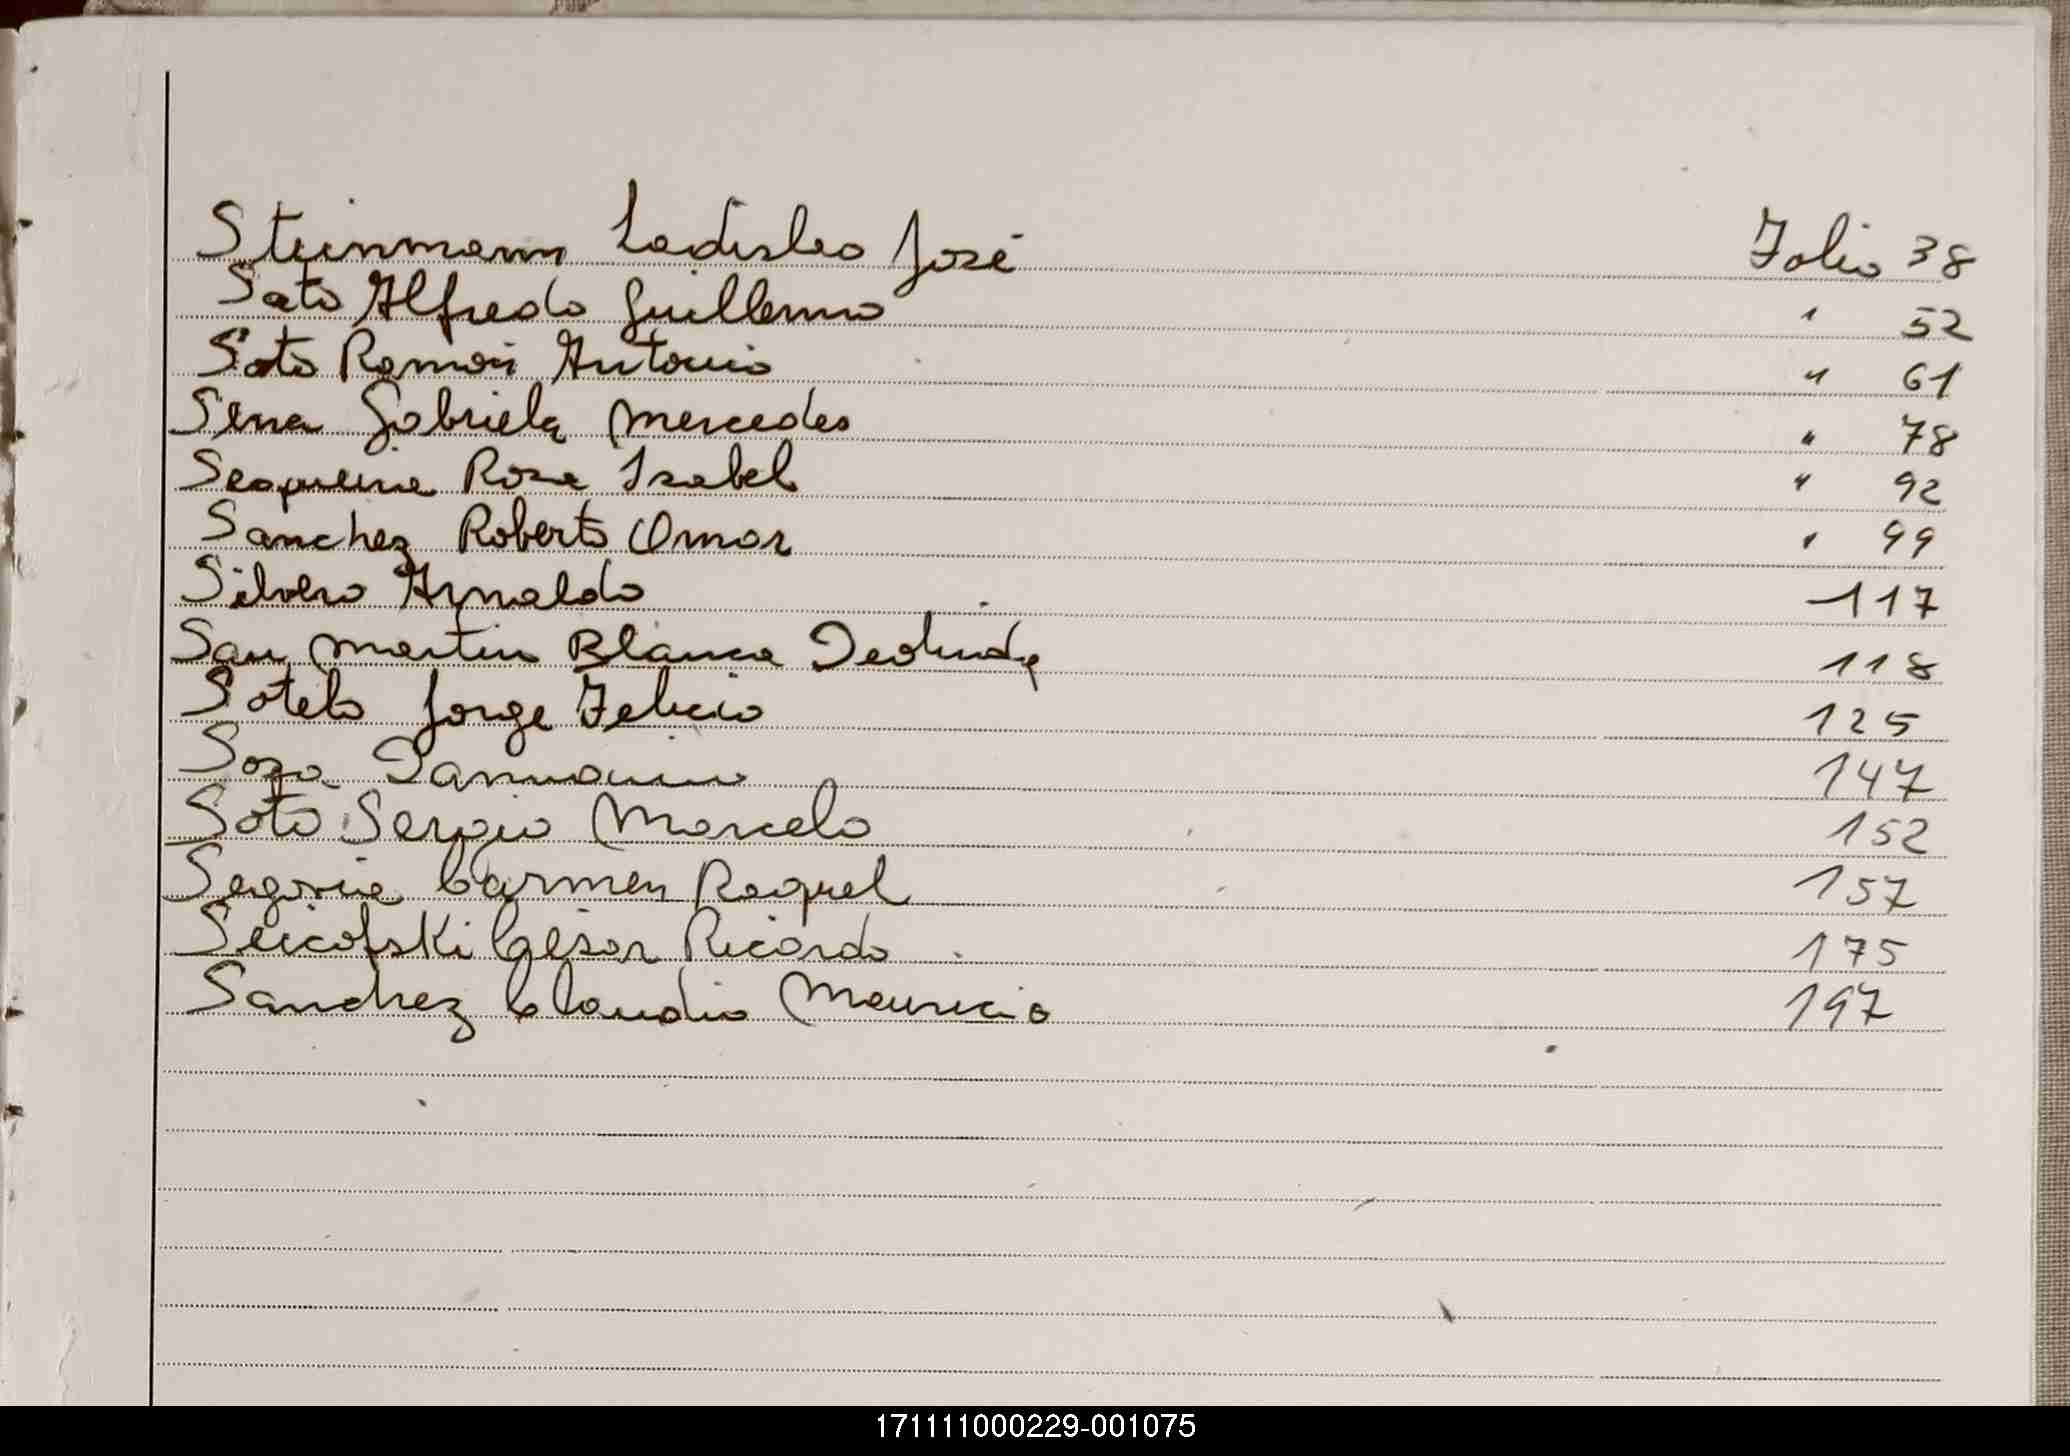 Steinmann Ladislao José Folio 38
Soto Alfredo Guillermo " 52
Soto Ramón Antonio " 61
Sena Gabriela Mercedes " 78
Sequeira Rosa Isabel " 92
Sanchez Roberto Omar " 99
Silvero Arnaldo 117
San Martin Blanca Deolinda 118
Sotelo Jorge Felicio 125
Soza 147
Soto Sergio Marcelo 152
Segovia Carmen Raquel 157
Seicofski César Ricardo 175
Sanchez Claudio Mauricio 197
171111000229-001075